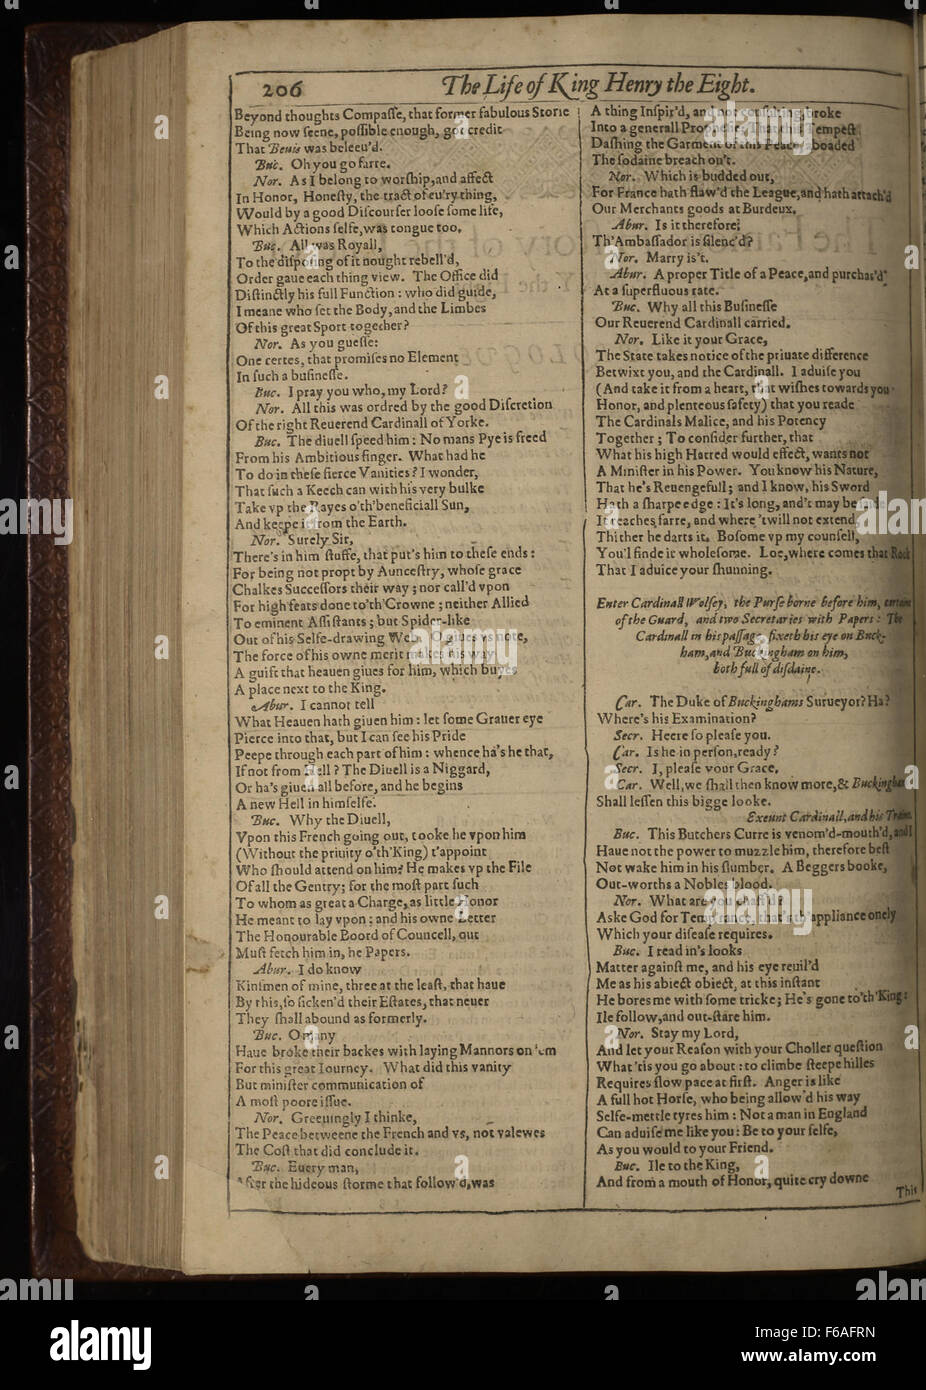 206
The Life of King Henry the Eight.
Beyond thoughts Compaſſe, that former fabulous Storie
Being now ſeene, poſſible enough, got credit
That Beuis was beleeu'd.
Buc. Oh you go farre.
Nor. As I belong to worſhip, and affect
In Honor, Honeſty, the tract of eu'ry thing,
Would by a good Diſcourſer looſe ſome life,
Which Actions ſelfe, was tongue too.
Buc. All was Royall,
To the diſpoſing of it nought rebell'd,
Order gaue each thing view. The Office did
Diſtinctly his full Function: who did guide,
I meane who ſet the Body, and the Limbes
Of this great Sport together?
Nor. As you gueſſe:
One certes, that promiſes no Element
In ſuch a buſineſſe.
Buc. I pray you who, my Lord?
Nor. All this was ordred by the good Diſcretion
Of the right Reuerend Cardinall of Yorke.
Buc. The diuell ſpeed him: No mans Pye is freed
From his Ambitious finger. What had he
To do in theſe fierce Vanities? I wonder,
That ſuch a Keech can with his very bulke
Take vp the Rayes o'th'beneficiall Sun,
And keepe it from the Earth.
Nor. Surely Sir,
There's in him ſtuffe, that put's him to theſe ends:
For being not propt by Aunceſtry, whoſe grace
Chalkes Succeſſors their way; nor call'd vpon
For high feats done to'th'Crowne; neither Allied
To eminent Aſſiſtants; but Spider-like
Out of his Selfe-drawing Web. O giues vs note,
The force of his owne merit makes his way
A guift that heauen giues for him, which buyes
A place next to the King.
Abur. I cannot tell
What Heauen hath giuen him: let ſome Grauer eye
Pierce into that, but I can ſee his Pride
Peepe through each part of him: whence ha's he that,
If not from Hell? The Diuell is a Niggard,
Or ha's giuen all before, and he begins
A new Hell in himſelfe.
Buc. Why the Diuell,
Vpon this French going out, tooke he vpon him
(Without the priuity o'th'King) t'appoint
Who ſhould attend on him? He makes vp the File
Of all the Gentry; for the moſt part ſuch
To whom as great a Charge, as little Honor
He meant to lay vpon: and his owne Letter
The Honourable Boord of Councell, out
Muſt fetch him in, he Papers.
Abur. I do know
Kinſmen of mine, three at the leaſt, that haue
By this, ſo ſicken'd their Eſtates, that neuer
They ſhall abound as formerly.
Buc. O many
Haue broke their backes with laying Mannors on 'em
For this great Iourney. What did this vanity
But miniſter communication of
A moſt poore iſſue.
Nor. Greeuingly I thinke,
The Peace betweene the French and vs, not valewes
The Coſt that did conclude it.
Buc. Euery man,
After the hideous ſtorme that follow'd, was
A thing Inſpir'd, and not conſulting, broke
Into a generall Propheſie; That this Tempeſt
Daſhing the Garment of this Peace, aboaded
The ſodaine breach on't.
Nor. Which is budded out,
For France hath flaw'd the League, and hath attach'd
Our Merchants goods at Burdeux.
Abur. Is it therefore
Th'Ambaſſador is ſilenc'd?
Nor. Marry is't.
Abur. A proper Title of a Peace, and purchas'd
At a ſuperfluous rate.
Buc. Why all this Buſineſſe
Our Reuerend Cardinall carried.
Nor. Like it your Grace,
The State takes notice of the priuate difference
Betwixt you, and the Cardinall. I aduiſe you
(And take it from a heart, that wiſhes towards you
Honor, and plenteous ſafety) that you reade
The Cardinals Malice, and his Potency
Together; To conſider further, that
What his high Hatred would effect, wants not
A Miniſter in his Power. You know his Nature,
That he's Reuengefull; and I know, his Sword
Hath a ſharpe edge: It's long, and't may be ſaide
It reaches farre, and where 'twill not extend,
Thither he darts it. Boſome vp my counſell,
You'l finde it wholeſome. Loe, where comes that Rock
That I aduice your ſhunning.
Enter Cardinall Wolſey, the Purſe borne before him, certaine
of the Guard, and two Secretaries with Papers: The
Cardinall in his paſſage, fixeth his eye on Buck-
ham, and Buckingham on him,
both full of diſdaine.
Car. The Duke of Buckinghams Surueyor? Ha?
Where's his Examination?
Secr. Heere ſo pleaſe you.
Car. Is he in perſon, ready?
Secr. I, pleaſe your Grace.
Car. Well, we ſhall then know more, & Buckingham
Shall leſſen this bigge looke.
Exeunt Cardinall, and his Traine.
Buc. This Butchers Curre is venom'd-mouth'd, and I
Haue not the power to muzzle him, therefore beſt
Not wake him in his ſlumber. A Beggers booke,
Out-worths a Nobles blood.
Nor. What are you chaff'd?
Aske God for Temp'rance, that's th'appliance onely
Which your diſeaſe requires.
Buc. I read in's looks
Matter againſt me, and his eye reuil'd
Me as his abiect obiect, at this inſtant
He bores me with ſome tricke; He's gone to'th'King:
Ile follow, and out-ſtare him.
Nor. Stay my Lord,
And let your Reaſon with your Choller queſtion
What 'tis you go about: to climbe ſteepe hilles
Requires ſlow pace at firſt. Anger is like
A full hot Horſe, who being allow'd his way
Selfe-mettle tyres him: Not a man in England
Can aduiſe me like you: Be to your ſelfe,
As you would to your Friend.
Buc. Ile to the King,
And from a mouth of Honor, quite cry downe
This
alamy
Image ID: F6AFRN
www.alamy.com